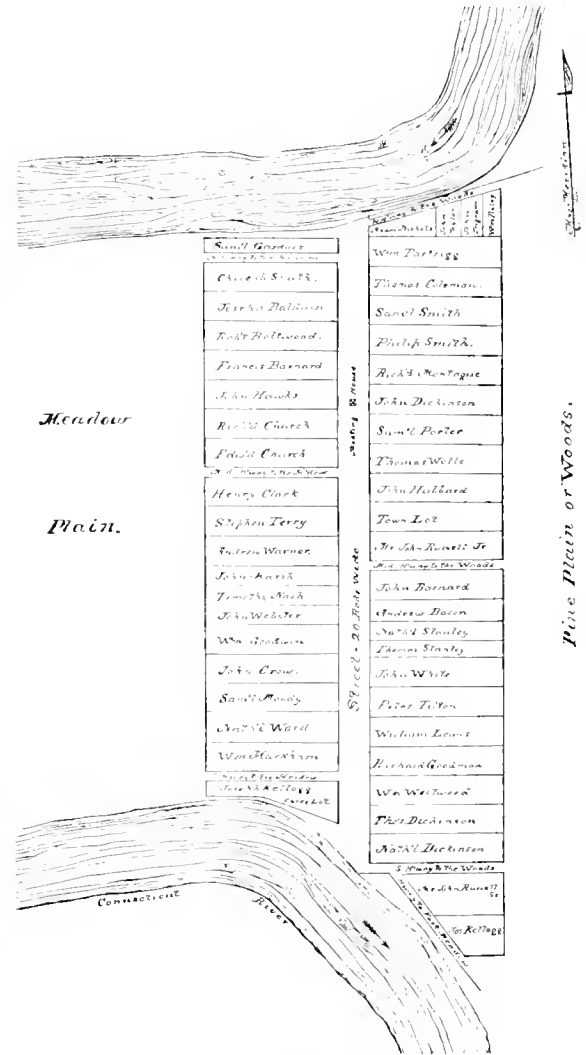 Saml Gardner
Chileab Smith.
Joseph Baldwin
Robt Boltwood.
Francis Barnard
John Hawks
Richd Church
Edwd Church
Henry Clark
Stephen Terry
Andrew Warner.
John Marsh
Timothy Nash
John Webster
Wm Goodwin
John Crow.
Saml Moody
Nathl Ward
Wm Markham
Joseph Kellogg
Lot
Meeting House
Street - 20 Rods Wide
to the Woods
John
Wm Partrigg
Thomas Coleman.
Saml Smith
Philip Smith.
Richd Montague
John Dickinson
Saml Porter
Thomas Wells
John Hubbard
Town Lot
Mr John Russell Jr
Mid H'way to the Woods
John Barnard
Andrew Bacon
Nathl Stanley
Thomas Stanley
John White
Peter Tilton
William Lewis
Richard Goodman
Wm Westwood
Thos Dickinson
Nathl Dickinson
S H'way to the Woods
Mr John Russell
Sr
Jos. Kellogg
Meadow
Plain.
Pine Plain or Woods.
Meridian
Connecticut
River